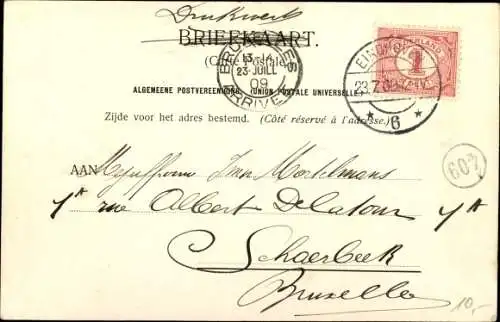 Drukwerk
BRIEFKAART.
(Carte Postale)
BRUXELLES
23 JUILL
09
ARRIVEE
NEDERLAND
1
CENT
EINDHOVEN
23.7.09
6
ALGEMEENE POSTVEREENIGING (UNION POSTALE UNIVERSELLE)
Zijde voor het adres bestemd. (Côté réservé à l'adresse.)
607
AAN Mejuffrouw Mortelmans
rue Albert Delatour
Schaerbeek
Bruxelles
10,-